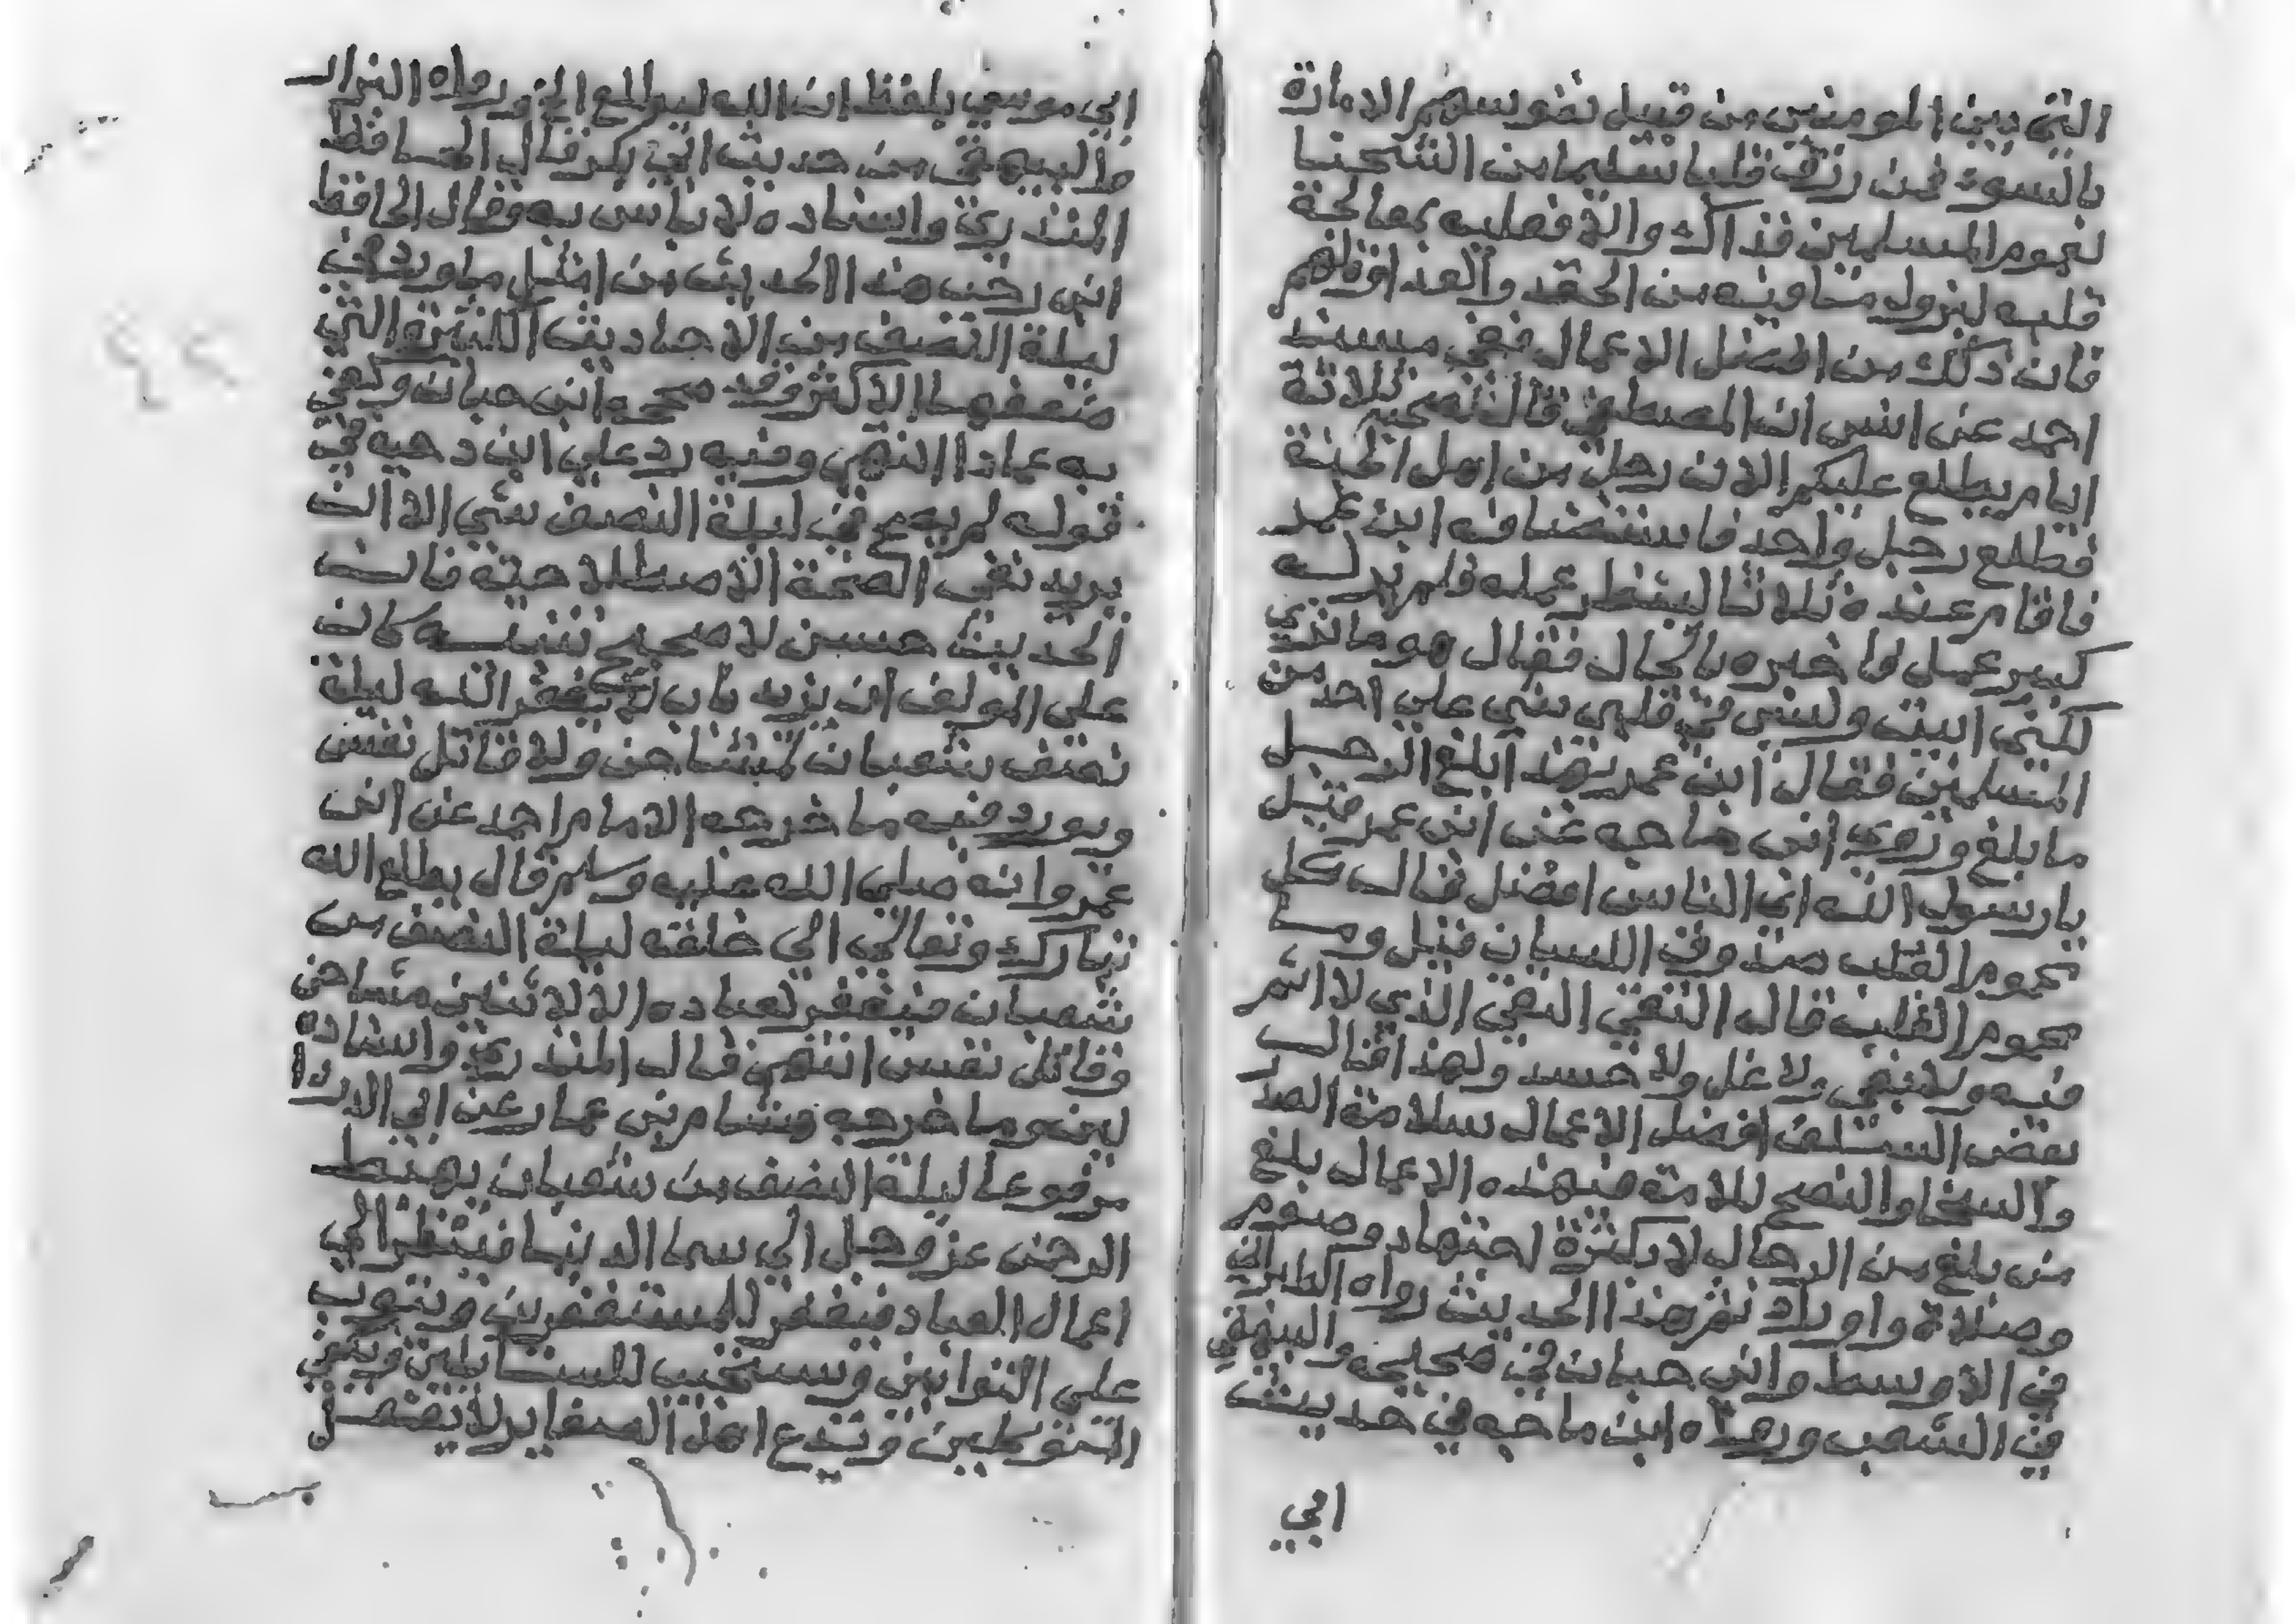 التي بين المومنين من قبيل نفوسهم الامارة
بالسوء فمن رزق قلبا سليما من الشحنا
لعموم المسلمين فذاك والا فعليه بمعالجة
قلبه لنزول ما فيه من الحقد والعداوة لهم
فان ذلك من افضل الاعمال ففي مسند
احمد عن انس ان المصطفى قال لصحبه ثلاثة
ايام يطلع عليكم الان رجل من اهل الجنة
فطلع رجل واحد فاستضافه ابن عمر
فاقام عنده ثلاثا لينظر عمله فلم ير له
كبير عمل فاخبره بالحال فقال هو ما ترى
لكني ابيت وليس في قلبي شي على احد من
المسلمين فقال ابن عمر بهذا بلغ الرجل
ما بلغ وروى ابن ماجه عن ابن عمر قيل
يا رسول الله اي الناس افضل قال كل
محموم القلب صدوق اللسان قيل وما
محموم القلب قال التقي النقي الذي لا اثم
فيه ولا بغي ولا غل ولا حسد ولهذا قال
بعض السلف افضل الاعمال سلامة الصدر
والسخا والنصح للامة فبهذه الاعمال بلغ
من بلغ من الرجال لا بكثرة اجتهاد وصوم
وصلاة واورك ثم هذا الحديث رواه الطبراني
في الاوسط وابن حبان في صحيحه والبيهقي
في الشعب ورواه ابن ماجه في حديث
ابي
ابي موسى بلفظ ان الله ليطلع الخ ورواه البزار
والبيهقي من حديث ابي بكر قال الحافظ
المنذري واسناده لا باس به وقال الحافظ
ابن رجب هذا الحديث من امثل ما ورد في
ليلة النصف من الاحاديث الكثيرة التي
ضعفها الاكثر وقد صححه ابن حبان وكفى
به عمادا انتهى وفيه رد على ابن دحية في
قوله لم يصح في ليلة النصف شي الا ان
يريد نفي الصحة الاصطلاحية فان
الحديث حسن لا صحيح تنبيه كان
على المولف ان يزيد بان لا يغفر الله ليلة
نصف شعبان لمشاحن ولا قاتل نفس
ويورد فيه ما خرجه الامام احمد عن ابن
عمرو انه صلى الله عليه وسلم قال يطلع الله
تبارك وتعالى الى خلقه ليلة النصف من
شعبان فيغفر لعباده الا لاثنين مشاحن
وقاتل نفس انتهى قال المنذري واسناده
لين وما خرجه هشام بن عمار عن ابي الدردا
مرفوعا ليلة النصف من شعبان يهبط
الرحمن عز وجل الى سما الدنيا فينظر الى
اعمال العباد فيغفر للمستغفرين ويتوب
على التوابين ويستجيب للسايلين ويكفي
المتوكلين ويدع اهل الضغاين لا يفعل